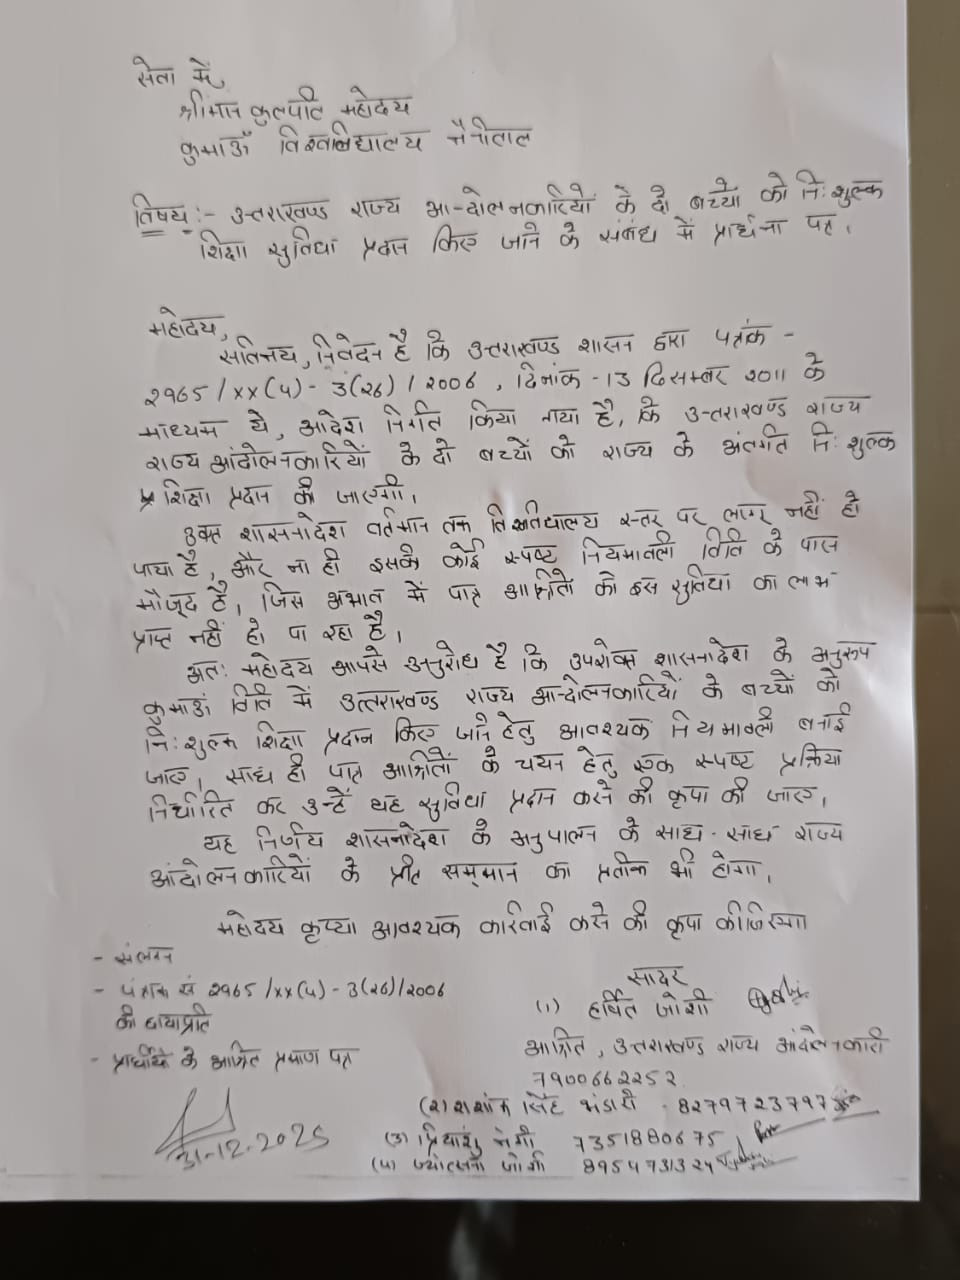 सेवा में,
श्रीमान कुलपति महोदय
कुमाऊँ विश्वविद्यालय नैनीताल
विषय :- उत्तराखण्ड राज्य आन्दोलनकारियों के दो बच्चों को निःशुल्क
शिक्षा सुविधा प्रदान किए जाने के संबंध में प्रार्थना पत्र।
महोदय,
सविनय, निवेदन है कि उत्तराखण्ड शासन द्वारा पत्रांक -
2965/xx(4)- 3(26)/2006, दिनांक -13 दिसम्बर 2011 के
माध्यम से, आदेश निर्गत किया गया है, कि उत्तराखण्ड राज्य
राज्य आंदोलनकारियों के दो बच्चों को राज्य के अंतर्गत निःशुल्क
शिक्षा प्रदान की जाएगी।
उक्त शासनादेश वर्तमान तक विश्वविद्यालय स्तर पर लागू नहीं हो
पाया है, और ना ही इसकी कोई स्पष्ट नियमावली विवि के पास
मौजूद है, जिस अभाव में पात्र आश्रितों को इस सुविधा का लाभ
प्राप्त नहीं हो पा रहा है।
अतः महोदय आपसे अनुरोध है कि उपरोक्त शासनादेश के अनुरूप
कुमाऊं विवि में उत्तराखण्ड राज्य आन्दोलनकारियों के बच्चों को
निःशुल्क शिक्षा प्रदान किए जाने हेतु आवश्यक नियमावली बनाई
जाए, साथ ही पात्र आश्रितों के चयन हेतु एक स्पष्ट प्रक्रिया
निर्धारित कर उन्हें यह सुविधा प्रदान करने की कृपा की जाए।
यह निर्णय शासनादेश के अनुपालन के साथ-साथ राज्य
आंदोलनकारियों के प्रति सम्मान का प्रतीक भी होगा।
महोदय कृप्या आवश्यक कारवाई करने की कृपा कीजिएगा
- संलग्न
- पत्रांक सं 2965/xx(4)-3(26)/2006
की छायाप्रति
- प्रार्थीयों के आश्रित प्रमाण पत्र
31-12-2025
सादर
(1) हर्षित जोशी
आश्रित, उत्तराखण्ड राज्य आंदोलनकारी
7900662252
(2) शशांक सिंह भंडारी - 8279723797
(3) प्रियांशु नेगी 7351880675
(4) ज्योत्सना जोशी 8954731324